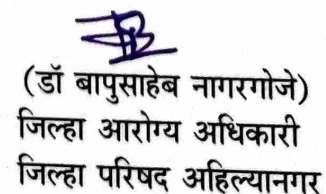 (डॉ बापुसाहेब नागरगोजे)
जिल्हा आरोग्य अधिकारी
जिल्हा परिषद अहिल्यानगर